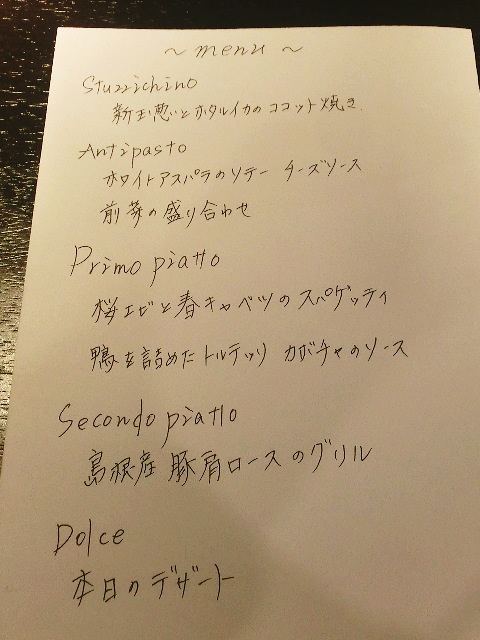 ~ menu ~
Stuzzichino
新玉葱いとホタルイカのココット焼き
Antipasto
ホワイトアスパラのソテー チーズソース
前菜の盛り合わせ
Primo piatto
桜エビと春キャベツのスパゲッティ
鴨を詰めたトルテッリ カボチャのソース
Secondo piatto
島根産 豚肩ロースのグリル
Dolce
本日のデザート